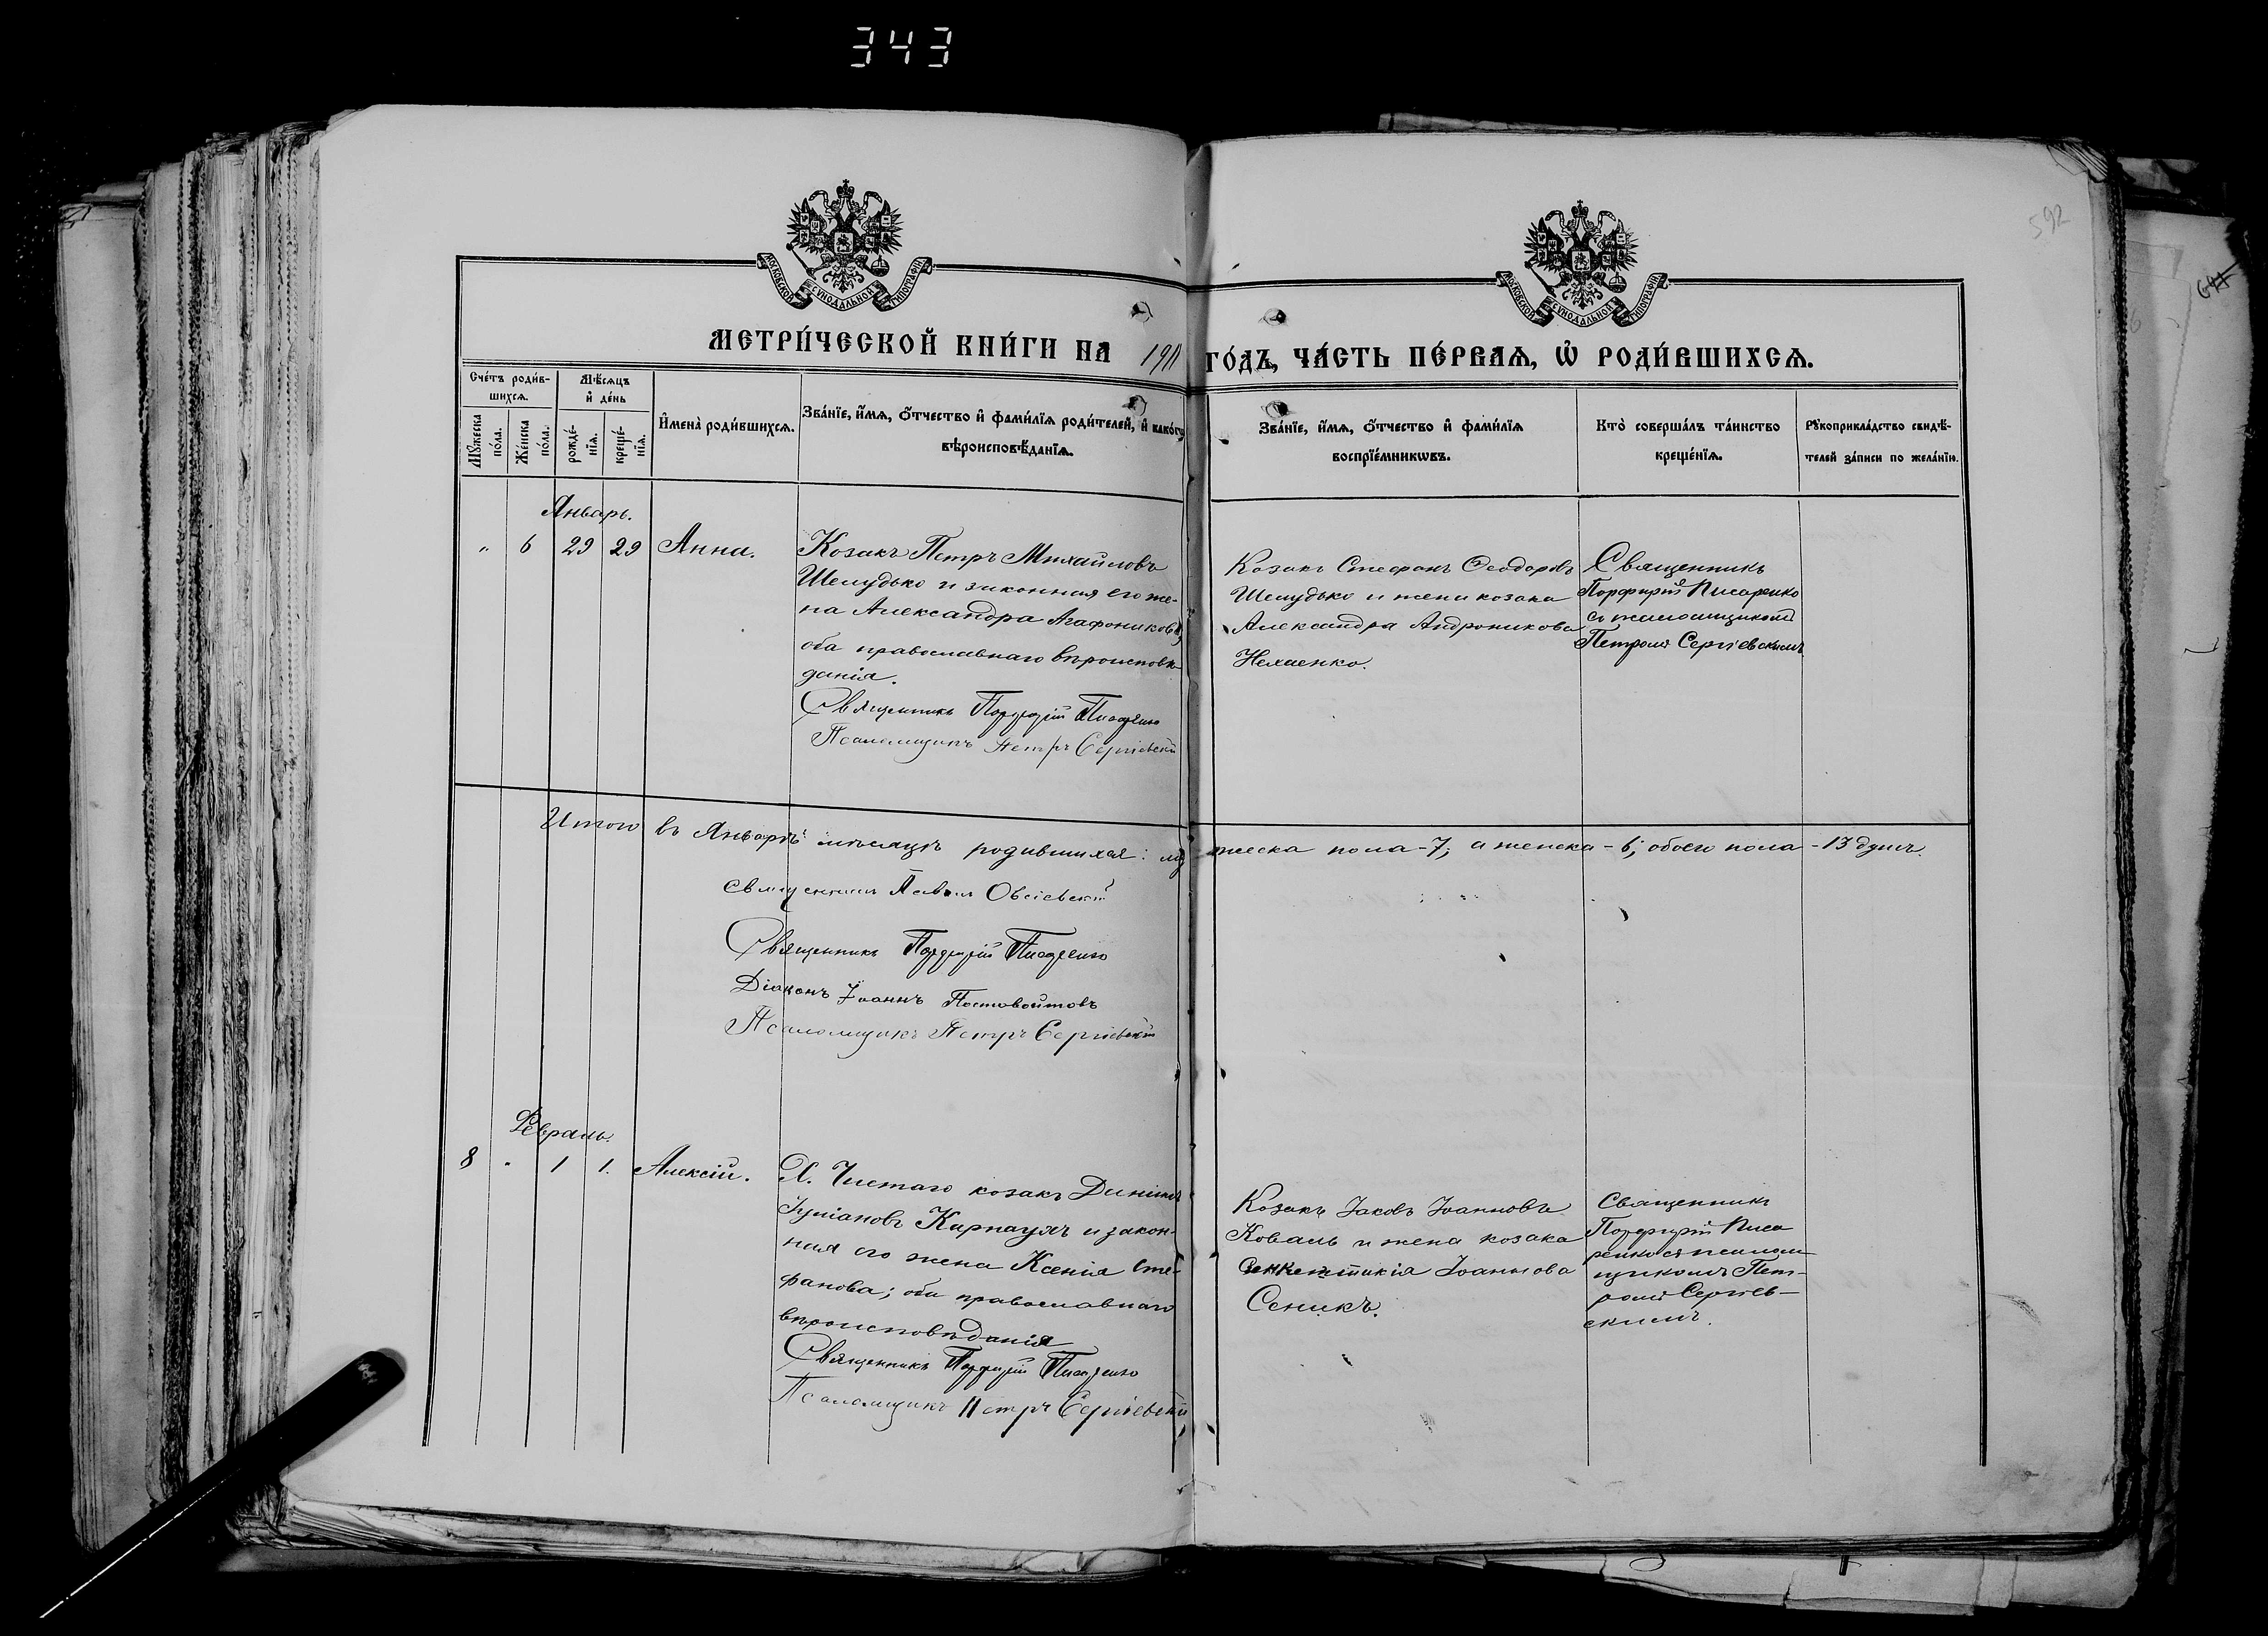 343
592
МОСКОВСКОЙ СѴНОДАЛЬНОЙ ТИПОГРАФІИ
МОСКОВСКОЙ СѴНОДАЛЬНОЙ ТИПОГРАФІИ
МЕТРИ́ЧЕСКОЙ КНИ́ГИ НА 1911 ГО́ДЪ, ЧА́СТЬ ПЕ́РВАЯ, Ѡ҆ РОДИ́ВШИХСЯ.
Сче́тъ роди́в-
шихся.
Мꙋ́жеска по́ла.
Же́нска по́ла.
Мѣ́сяцъ
и҆ де́нь
рожде́-
нїя.
креще́-
нїя.
И҆мена̀ роди́вшихся.
Зва́нїе, и҆́мя, ѻ҆́тчество и҆ фами́лїя роди́телей, и҆ како́гѡ
вѣроисповѣ́данїя.
Зва́нїе, и҆́мя, ѻ҆́тчество и҆ фами́лїя
воспрїе́мникѡвъ.
Кто̀ соверша́лъ та́инство
креще́нїя.
Рꙋкоприкла́дство свидѣ́-
телей за́писи по жела́нїю.
Январь.
" 6 29 29 Анна.
Козакъ Петръ Михайловъ
Шелудько и законная его же-
на Александра Агафоникова,
оба православнаго вѣроисповѣ-
данія.
Священникъ Порфирій Писаренко
Псаломщикъ Петръ Сергіевскій
Козакъ Стефанъ Ѳеодоровъ
Шелудько и жена козака
Александра Андроникова
Священникъ
Порфирій Писаренко
съ псаломщикомъ
Петромъ Сергіевскимъ
Итого въ Январѣ мѣсяцѣ родившихся: мужеска пола-7; а женска-6; обоего пола-13 душъ.
Священникъ Павелъ
Священникъ Порфирій Писаренко
Діаконъ Іоаннъ Постовойтовъ
Псаломщикъ Петръ Сергіевскій
Февраль.
8 " 1 1. Алексій.
Х. Чистаго козакъ Даніилъ
Карнаухъ и закон-
ная его жена Ксенія Сте-
фанова; оба православнаго
вѣроисповѣданія
Священникъ Порфирій Писаренко
Псаломщикъ Петръ Сергіевскій
Козакъ Іаковъ Іоанновъ
Коваль и жена козака
Іоаннова
Сеникъ.
Священникъ
Порфирій Писа
ренко съ псалом-
щикомъ Пет-
ромъ Сергіев-
скимъ.